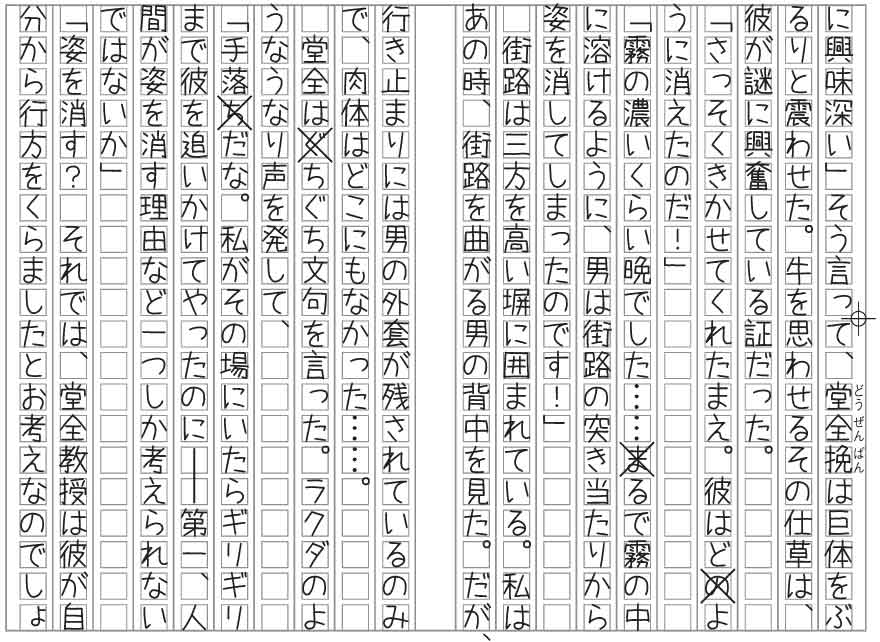 に興味深い」そう言って、堂全挽は巨体をぶ
どうぜんばん
るりと震わせた。牛を思わせるその仕草は、
彼が謎に興奮している証だった。
「さっそくきかせてくれたまえ。彼はどのよ
うに消えたのだ!」
「霧の濃いくらい晩でした……まるで霧の中
に溶けるように、男は街路の突き当たりから
姿を消してしまったのです!」
　街路は三方を高い塀に囲まれている。私は
あの時、街路を曲がる男の背中を見た。だが、
行き止まりには男の外套が残されているのみ
で、肉体はどこにもなかった……。
　堂全はぐちぐち文句を言った。ラクダのよ
うなうなり声を発して、
「手落ちだな。私がその場にいたらギリギリ
まで彼を追いかけてやったのに――第一、人
間が姿を消す理由など一つしか考えられない
ではないか」
「姿を消す?　それでは、堂全教授は彼が自
分から行方をくらましたとお考えなのでしょ